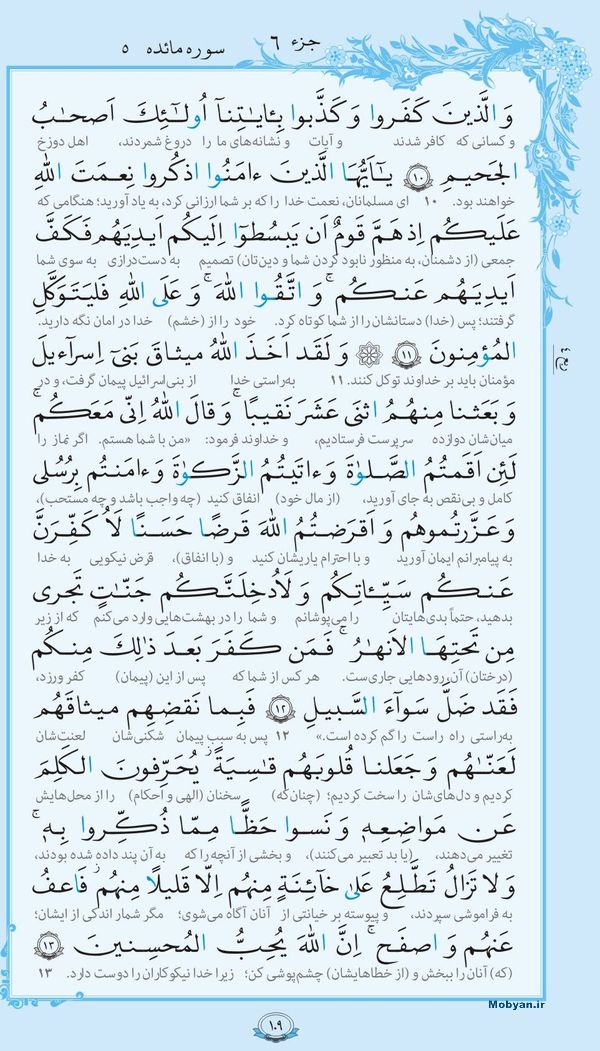 جزء ٦
سوره مائده ٥
وَ الَّذينَ كَفَروا وَ كَذَّبوا بِـٔايـٰتِنآ اُولـٰٓئِكَ اَصحـٰبُ
و کسانی که کافر شدند و آیات و نشانه‌های ما را دروغ شمردند، اهل دوزخ
الجَحيمِ ١٠ يـٰٓاَيُّهَا الَّذينَ ءامَنُوا اذكُروا نِعمَتَ اللهِ
خواهند بود. ۱۰ ای مسلمانان، نعمت خدا را که بر شما ارزانی کرد، به یاد آورید؛ هنگامی که
عَلَيكُم اِذ هَمَّ قَومٌ اَن يَبسُطوٓا اِلَيكُم اَيدِيَهُم فَكَفَّ
جمعی (از دشمنان، به منظور نابود کردن شما و دین‌تان) تصمیم به دست‌درازی به سوی شما
اَيدِيَهُم عَنكُم ۚ وَ اتَّقُوا اللهَ ۚ وَ عَلَى اللهِ فَليَتَوَكَّلِ
گرفتند؛ پس (خدا) دستانشان را از شما کوتاه کرد. خود را از (خشم) خدا در امان نگه دارید.
المُؤمِنونَ ١١ وَ لَقَد اَخَذَ اللهُ ميثاقَ بَنىٓ اِسرآءيلَ
مؤمنان باید بر خداوند توکل کنند. ۱۱ به‌راستی خدا از بنی‌اسرائیل پیمان گرفت، و در
وَ بَعَثنا مِنهُمُ اثنَى عَشَرَ نَقيبًا ۖ وَ قالَ اللهُ اِنّى مَعَكُم ۖ
میان‌شان دوازده سرپرست فرستادیم، و خداوند فرمود: «من با شما هستم. اگر نماز را
لَئِن اَقَمتُمُ الصَّلوٰةَ وَ ءاتَيتُمُ الزَّكوٰةَ وَ ءامَنتُم بِرُسُلى
کامل و بی‌نقص به جای آورید، (از مال خود) انفاق کنید (چه واجب باشد و چه مستحب)،
وَ عَزَّرتُموهُم وَ اَقرَضتُمُ اللهَ قَرضًا حَسَنًا لَاُكَفِّرَنَّ
به پیامبرانم ایمان آورید و با احترام یاریشان کنید و (با انفاق)، قرض نیکویی به خدا
عَنكُم سَيِّـٔاتِكُم وَ لَاُدخِلَنَّكُم جَنّـٰتٍ تَجرى
بدهید، حتماً بدی‌هایتان را می‌پوشانم و شما را در بهشت‌هایی وارد می‌کنم که از زیر
مِن تَحتِهَا الاَنهـٰرُ ۚ فَمَن كَفَرَ بَعدَ ذٰلِكَ مِنكُم
(درختان) آن، رودهایی جاری‌ست. هر کس از شما که پس از این (پیمان) کفر ورزد،
فَقَد ضَلَّ سَوآءَ السَّبيلِ ١٢ فَبِما نَقضِهِم ميثاقَهُم
به‌راستی راه راست را گم کرده است.» ۱۲ پس به سبب پیمان شکنی‌شان لعنت‌شان
لَعَنّـٰهُم وَ جَعَلنا قُلوبَهُم قـٰسِيَةً ۖ يُحَرِّفونَ الكَلِمَ
کردیم و دل‌های‌شان را سخت کردیم؛ (چنان‌که) سخنان (الهی و احکام) را از محل‌هایش
عَن مَواضِعِهٖ ۙ وَ نَسوا حَظًّا مِمّا ذُكِّروا بِهٖ ۚ
تغییر می‌دهند، (یا بد تعبیر می‌کنند)، و بخشی از آنچه را که به آن پند داده شده بودند،
وَ لا تَزالُ تَطَّلِعُ عَلىٰ خآئِنَةٍ مِنهُم اِلّا قَليلًا مِنهُم ۖ فَاعفُ
به فراموشی سپردند، و پیوسته بر خیانتی از آنان آگاه می‌شوی؛ مگر شمار اندکی از ایشان؛
عَنهُم وَ اصفَح ۚ اِنَّ اللهَ يُحِبُّ المُحسِنينَ ١٣
(که) آنان را ببخش و (از خطاهایشان) چشم‌پوشی کن؛ زیرا خدا نیکوکاران را دوست دارد. ۱۳
Mobyan.ir
١٠٩